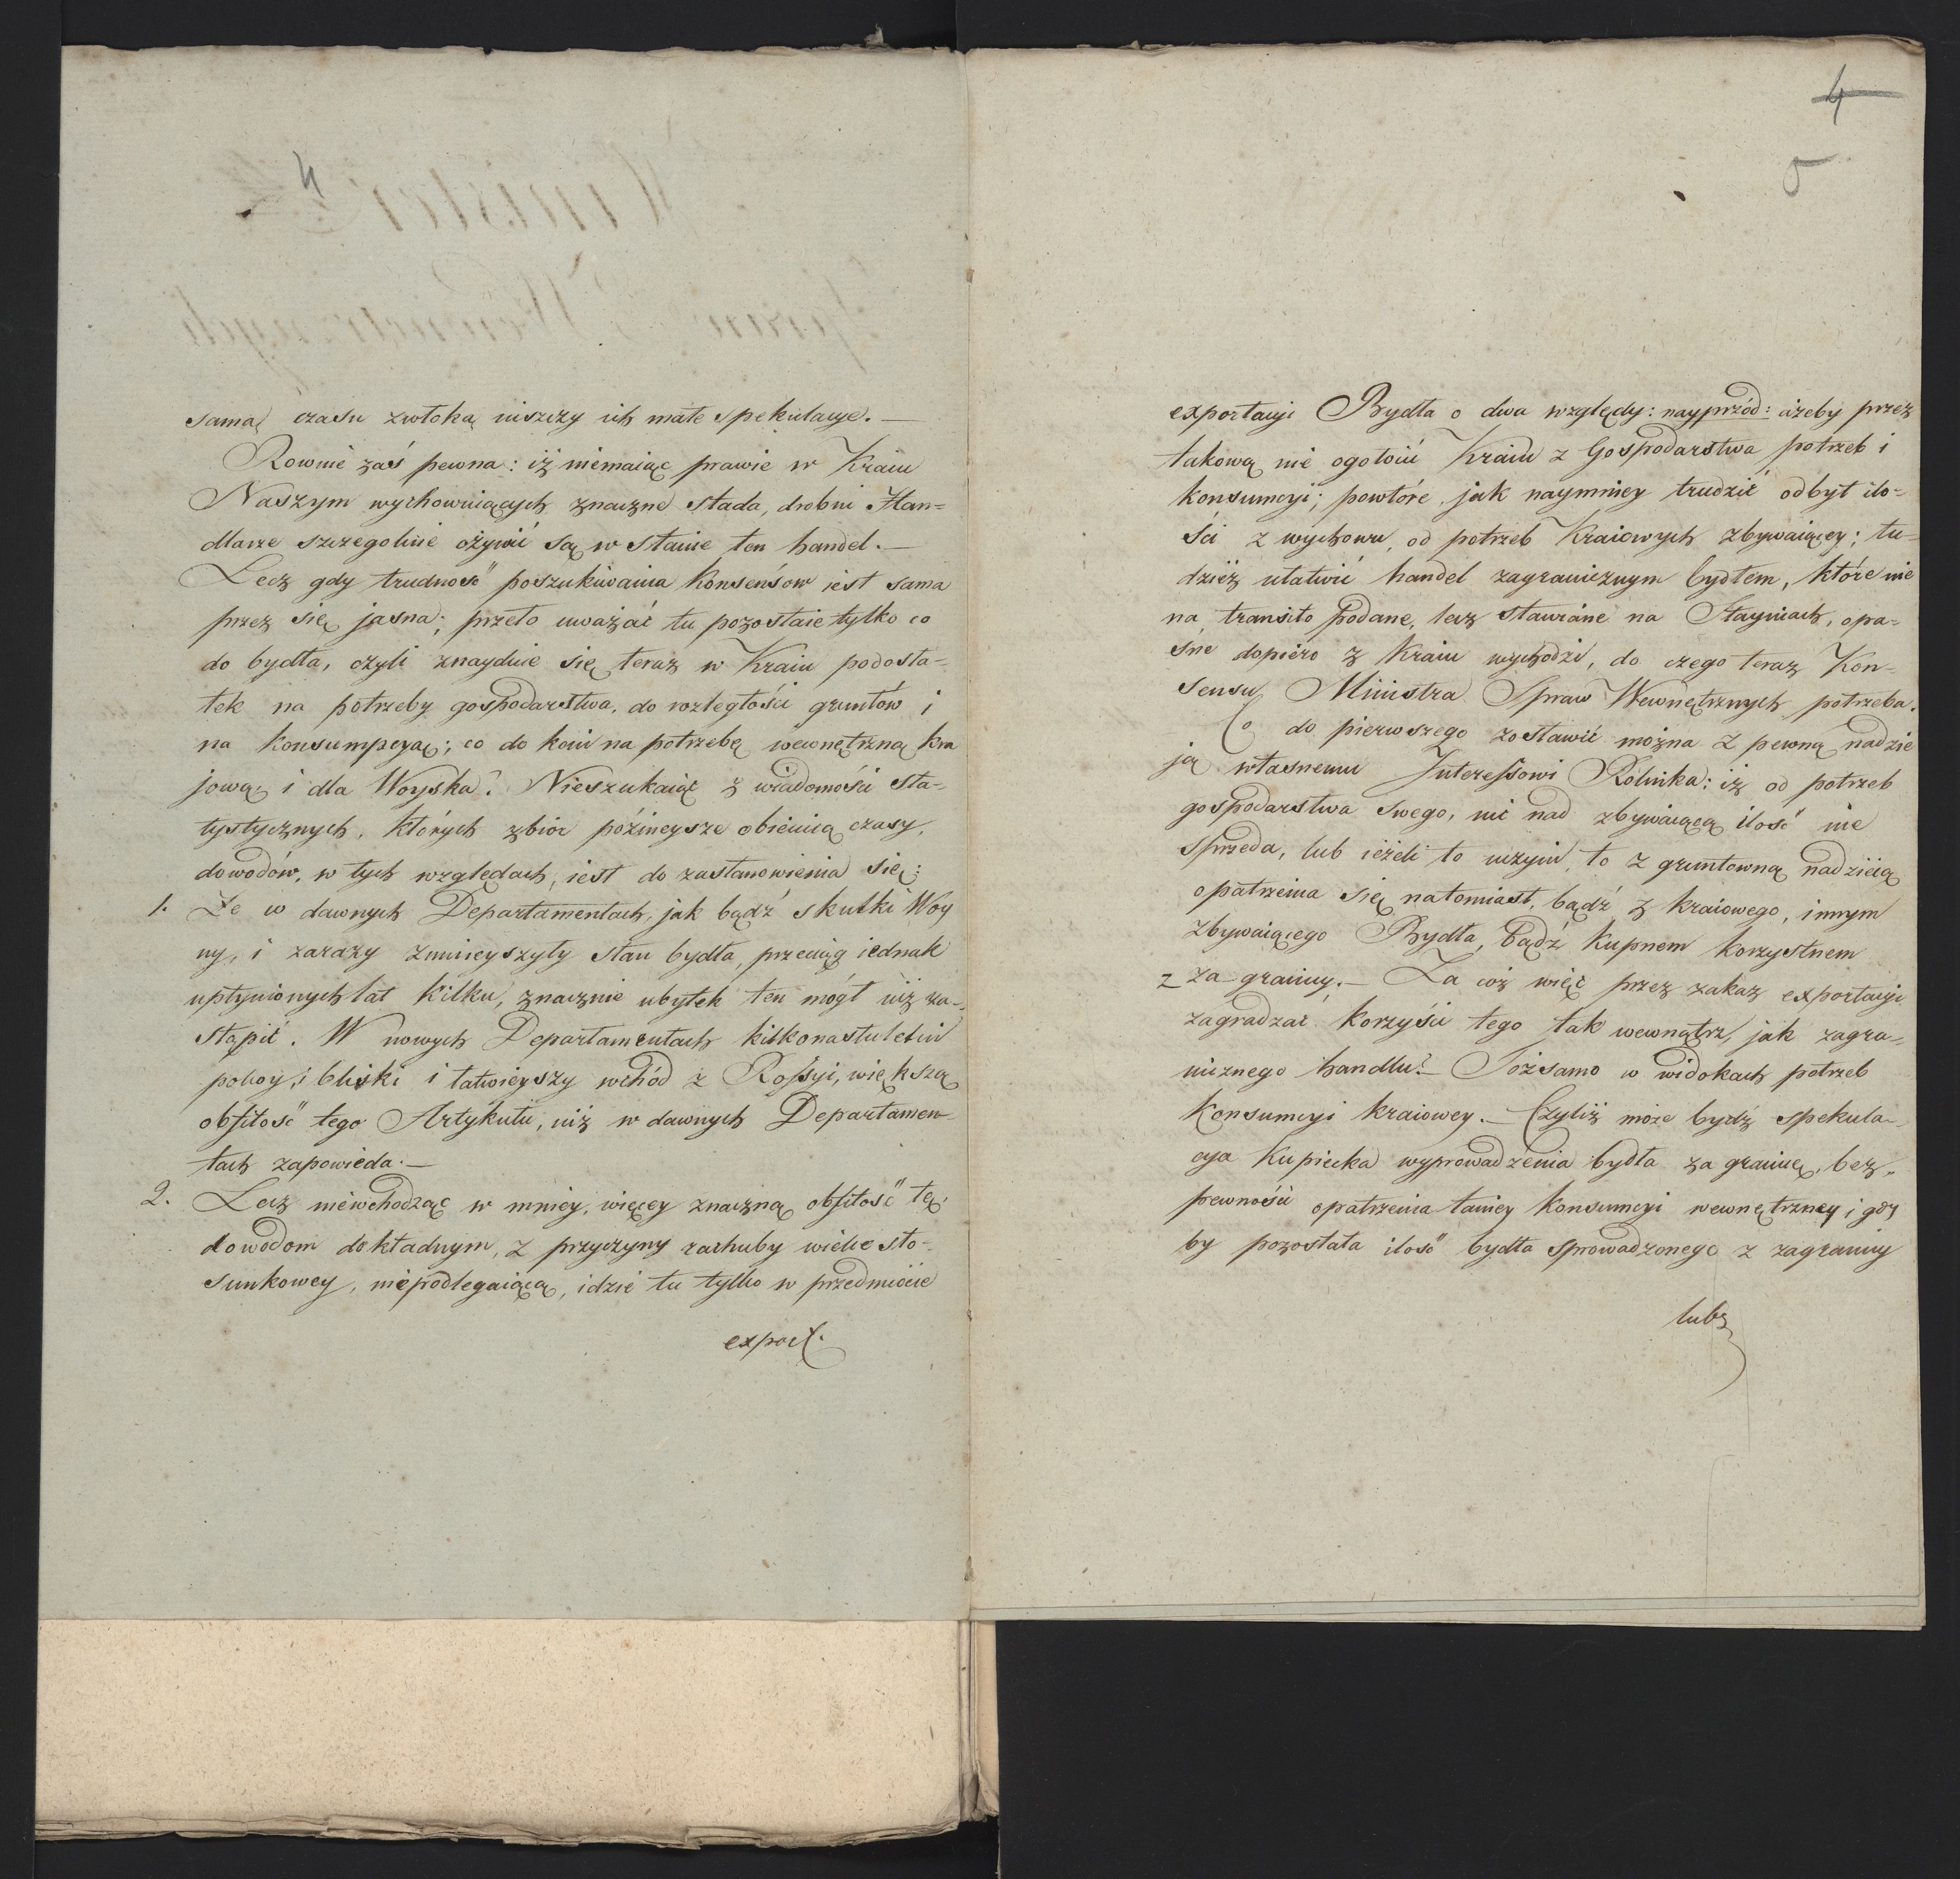 4
samą czasu zwłoką niszczy ich małe spekulacye. —
Rownie zaś pewna: iż niemaiąc prawie w Kraiu
Naszym wychowuiących znaczne stada, drobni Han=
dlarze szczegolnie ożywić są w stanie ten handel. —
Lecz gdy trudność poszukiwania Konsensow iest sama
przez się jasna; przeto uważać tu pozostaie tylko co
do bydła, czyli znayduie się teraz w Kraiu podosta=
tek na potrzeby gospodarstwa, do rozległości gruntów i
na konsumpcyą; co do koni na potrzebę wewnętrzną kra
jową i dla Woyska? Nieszukaiąc z wiadomości sta=
tystycznych, których zbior późnieysze obiecuią czasy,
dowodów, w tych względach, iest do zastanowienia się:
1. Że w dawnych Departamentach, jak bądź skutki Woy
ny, i zarazy zmnieyszyły stan bydła, przeciąg iednak
upłynionych lat kilku, znacznie ubytek ten mógł iuż za=
stąpić. W nowych Departamentach kilkonastuletni
pokoy, i bliski i łatwieyszy wchód z Rossyi, większą
obfitość tego Artykułu, niż w dawnych Departamen=
tach zapowiada. —
2. Lecz niewchodząc w mniey, więcey znaczną obfitość tę,
dowodom dokładnym, z przyczyny rachuby wielce sto=
sunkowey, niepodlegaiącą, idzie tu tylko w przedmiocie
export.
4
5
exportacyi Bydła o dwa względy: nayprzód: ażeby przez
takową nie ogołocić Kraiu z Gospodarstwa potrzeb i
konsumcyi; powtóre, jak naymniey trudzić odbyt ilo=
ści z wychowu, od potrzeb Kraiowych zbywaiącey; tu=
dzież ułatwić handel zagranicznym bydłem, które nie
na transito podane, lecz stawiane na Stayniach, opa=
śne dopiero z Kraiu wychodzi, do czego teraz Kon=
sensu Ministra Spraw Wewnętrznych potrzeba.
Co do pierwszego zostawić można z pewną nadzie
ją własnemu Interessowi Rolnika: iż od potrzeb
gospodarstwa swego, nic nad zbywaiącą ilość nie
sprzeda, lub ieżeli to uczyni, to z gruntowną nadzieią
opatrzenia się natomiast, bądź z kraiowego, innym
zbywaiącego Bydła, bądź kupnem korzystnem
z za granicy. — Za coż więc przez zakaz exportacyi
zagradzać korzyści tego tak wewnątrz, jak zagra=
nicznego handlu? — Toż samo w widokach potrzeb
Konsumcyi kraiowey. — Czyliż może bydź spekula=
cya Kupiecka wyprowadzenia bydła za granicę, bez=
pewności opatrzenia taniey konsumcyi wewnętrzney i gdy
by pozostała ilość bydła sprowadzonego z zagranicy
lub z